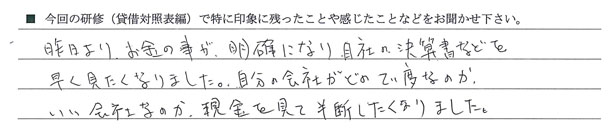 ■ 今回の研修（貸借対照表編）で特に印象に残ったことや感じたことなどをお聞かせ下さい。
昨日より、お金の事が、明確になり、自社の決算書などを
早く見たくなりました。自分の会社がどのてい度なのか、
いい会社なのか、現金を見て判断したくなりました。